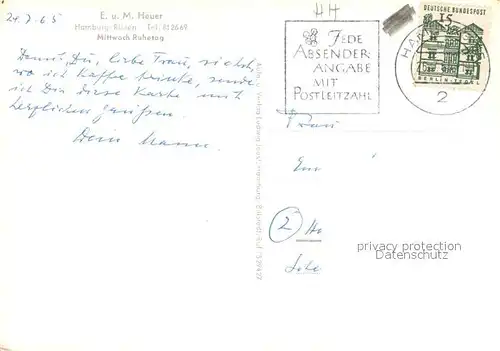 24.7.65
E. u. M. Heuer
Hamburg-Rissen Tel. 812669
Mittwoch Ruhetag
Damit Du, liebe Frau, siehst,
wo ich Kaffee trinke, sende
ich Dir diese Karte mit
herzlichen Grüßen.
Dein Mann.
HH
JEDE
ABSENDER-
ANGABE
MIT
POSTLEITZAHL
DEUTSCHE BUNDESPOST
15
BERLIN-TEGEL
HAM
2
Frau
Em
2 Ha
privacy protection
Datenschutz